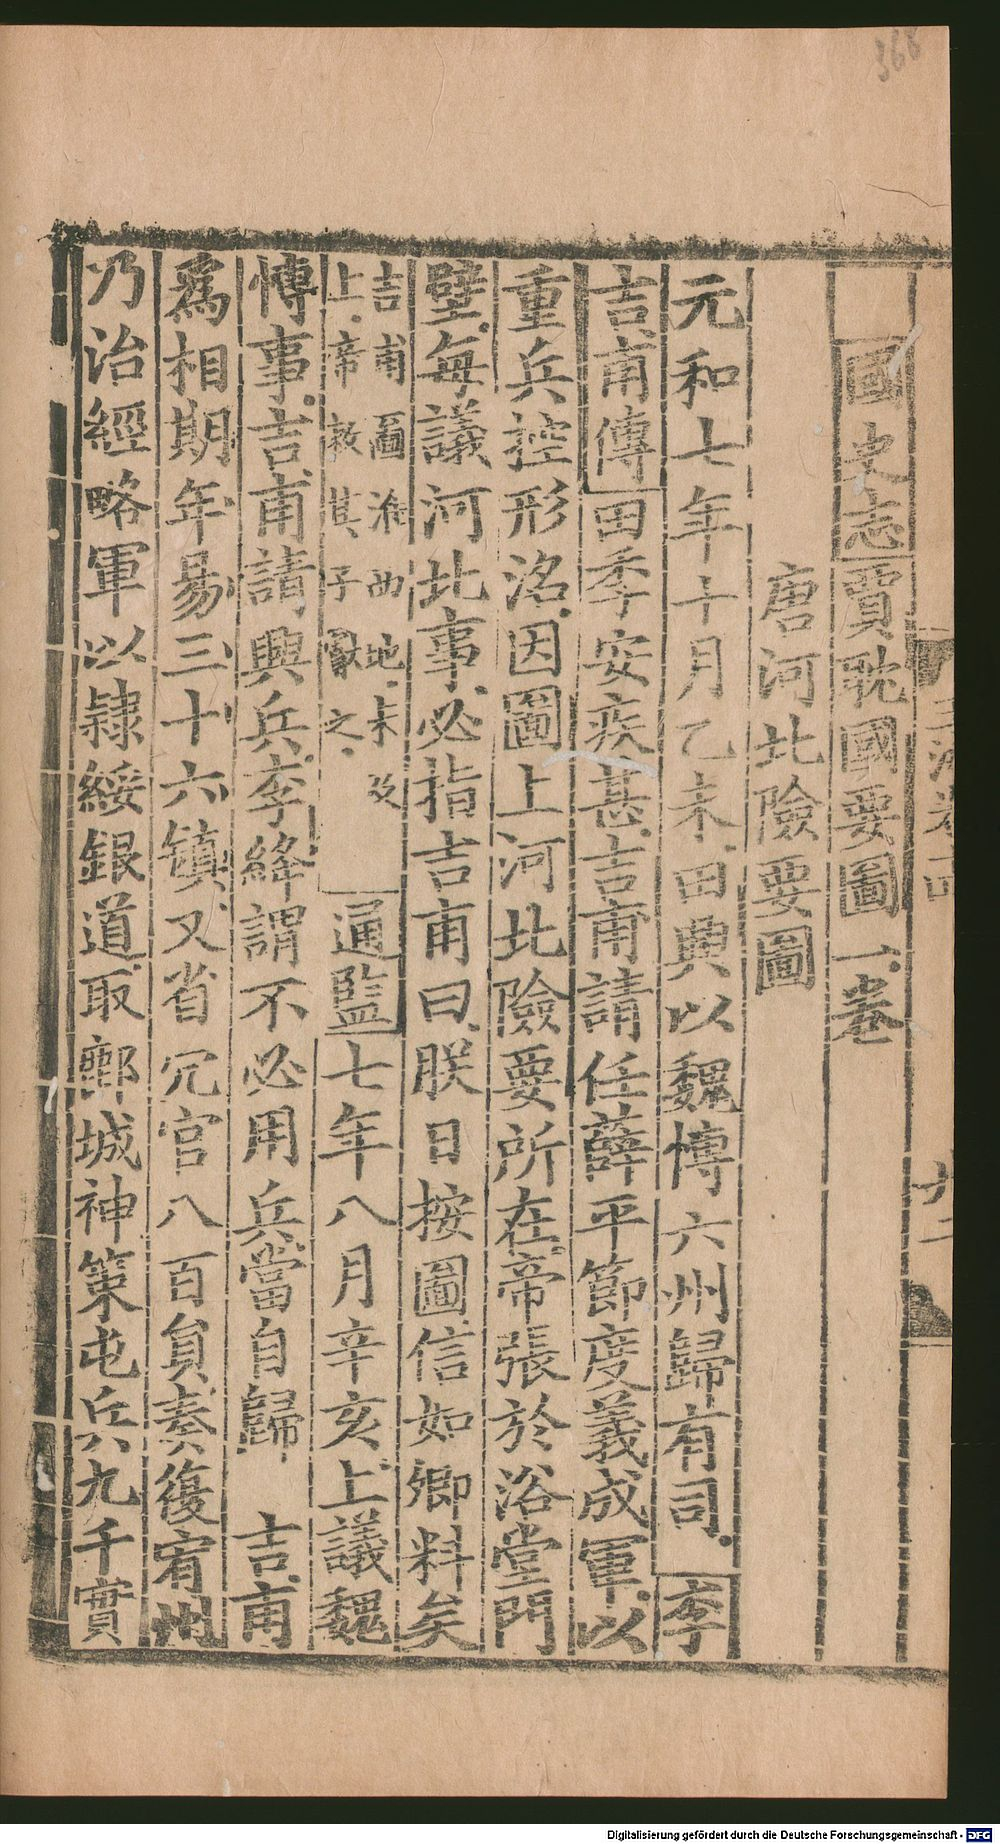 368
國史志賈耽國要圖一卷
唐河北險要圖
元和七年十月乙未田興以魏博六州歸有司李
吉甫傳田季安疾甚吉甫請任薛平節度義成軍以
重兵控形洺因圖上河北險要所在帝張於浴堂門
壁每議河北事必指吉甫曰朕日按圖信如卿料矣
吉甫圖淮西地未及
上帝敕其子獻之
通監七年八月辛亥上議魏
博事吉甫請興兵李絳謂不必用兵當自歸 吉甫
爲相期年易三十六鎮又省冗官八百員奏復宥州
乃治經略軍以隸綏銀道取鄜城神策屯兵九千實
Digitalisierung gefördert durch die Deutsche Forschungsgemeinschaft - DFG